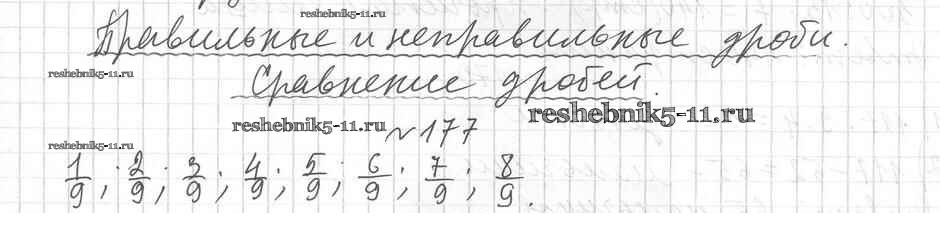 reshebnik5-11.ru
Правильные и неправильные дроби.
reshebnik5-11.ru
Сравнение дробей.
reshebnik5-11.ru
reshebnik5-11.ru
№177
reshebnik5-11.ru
1/9; 2/9; 3/9; 4/9; 5/9; 6/9; 7/9; 8/9.